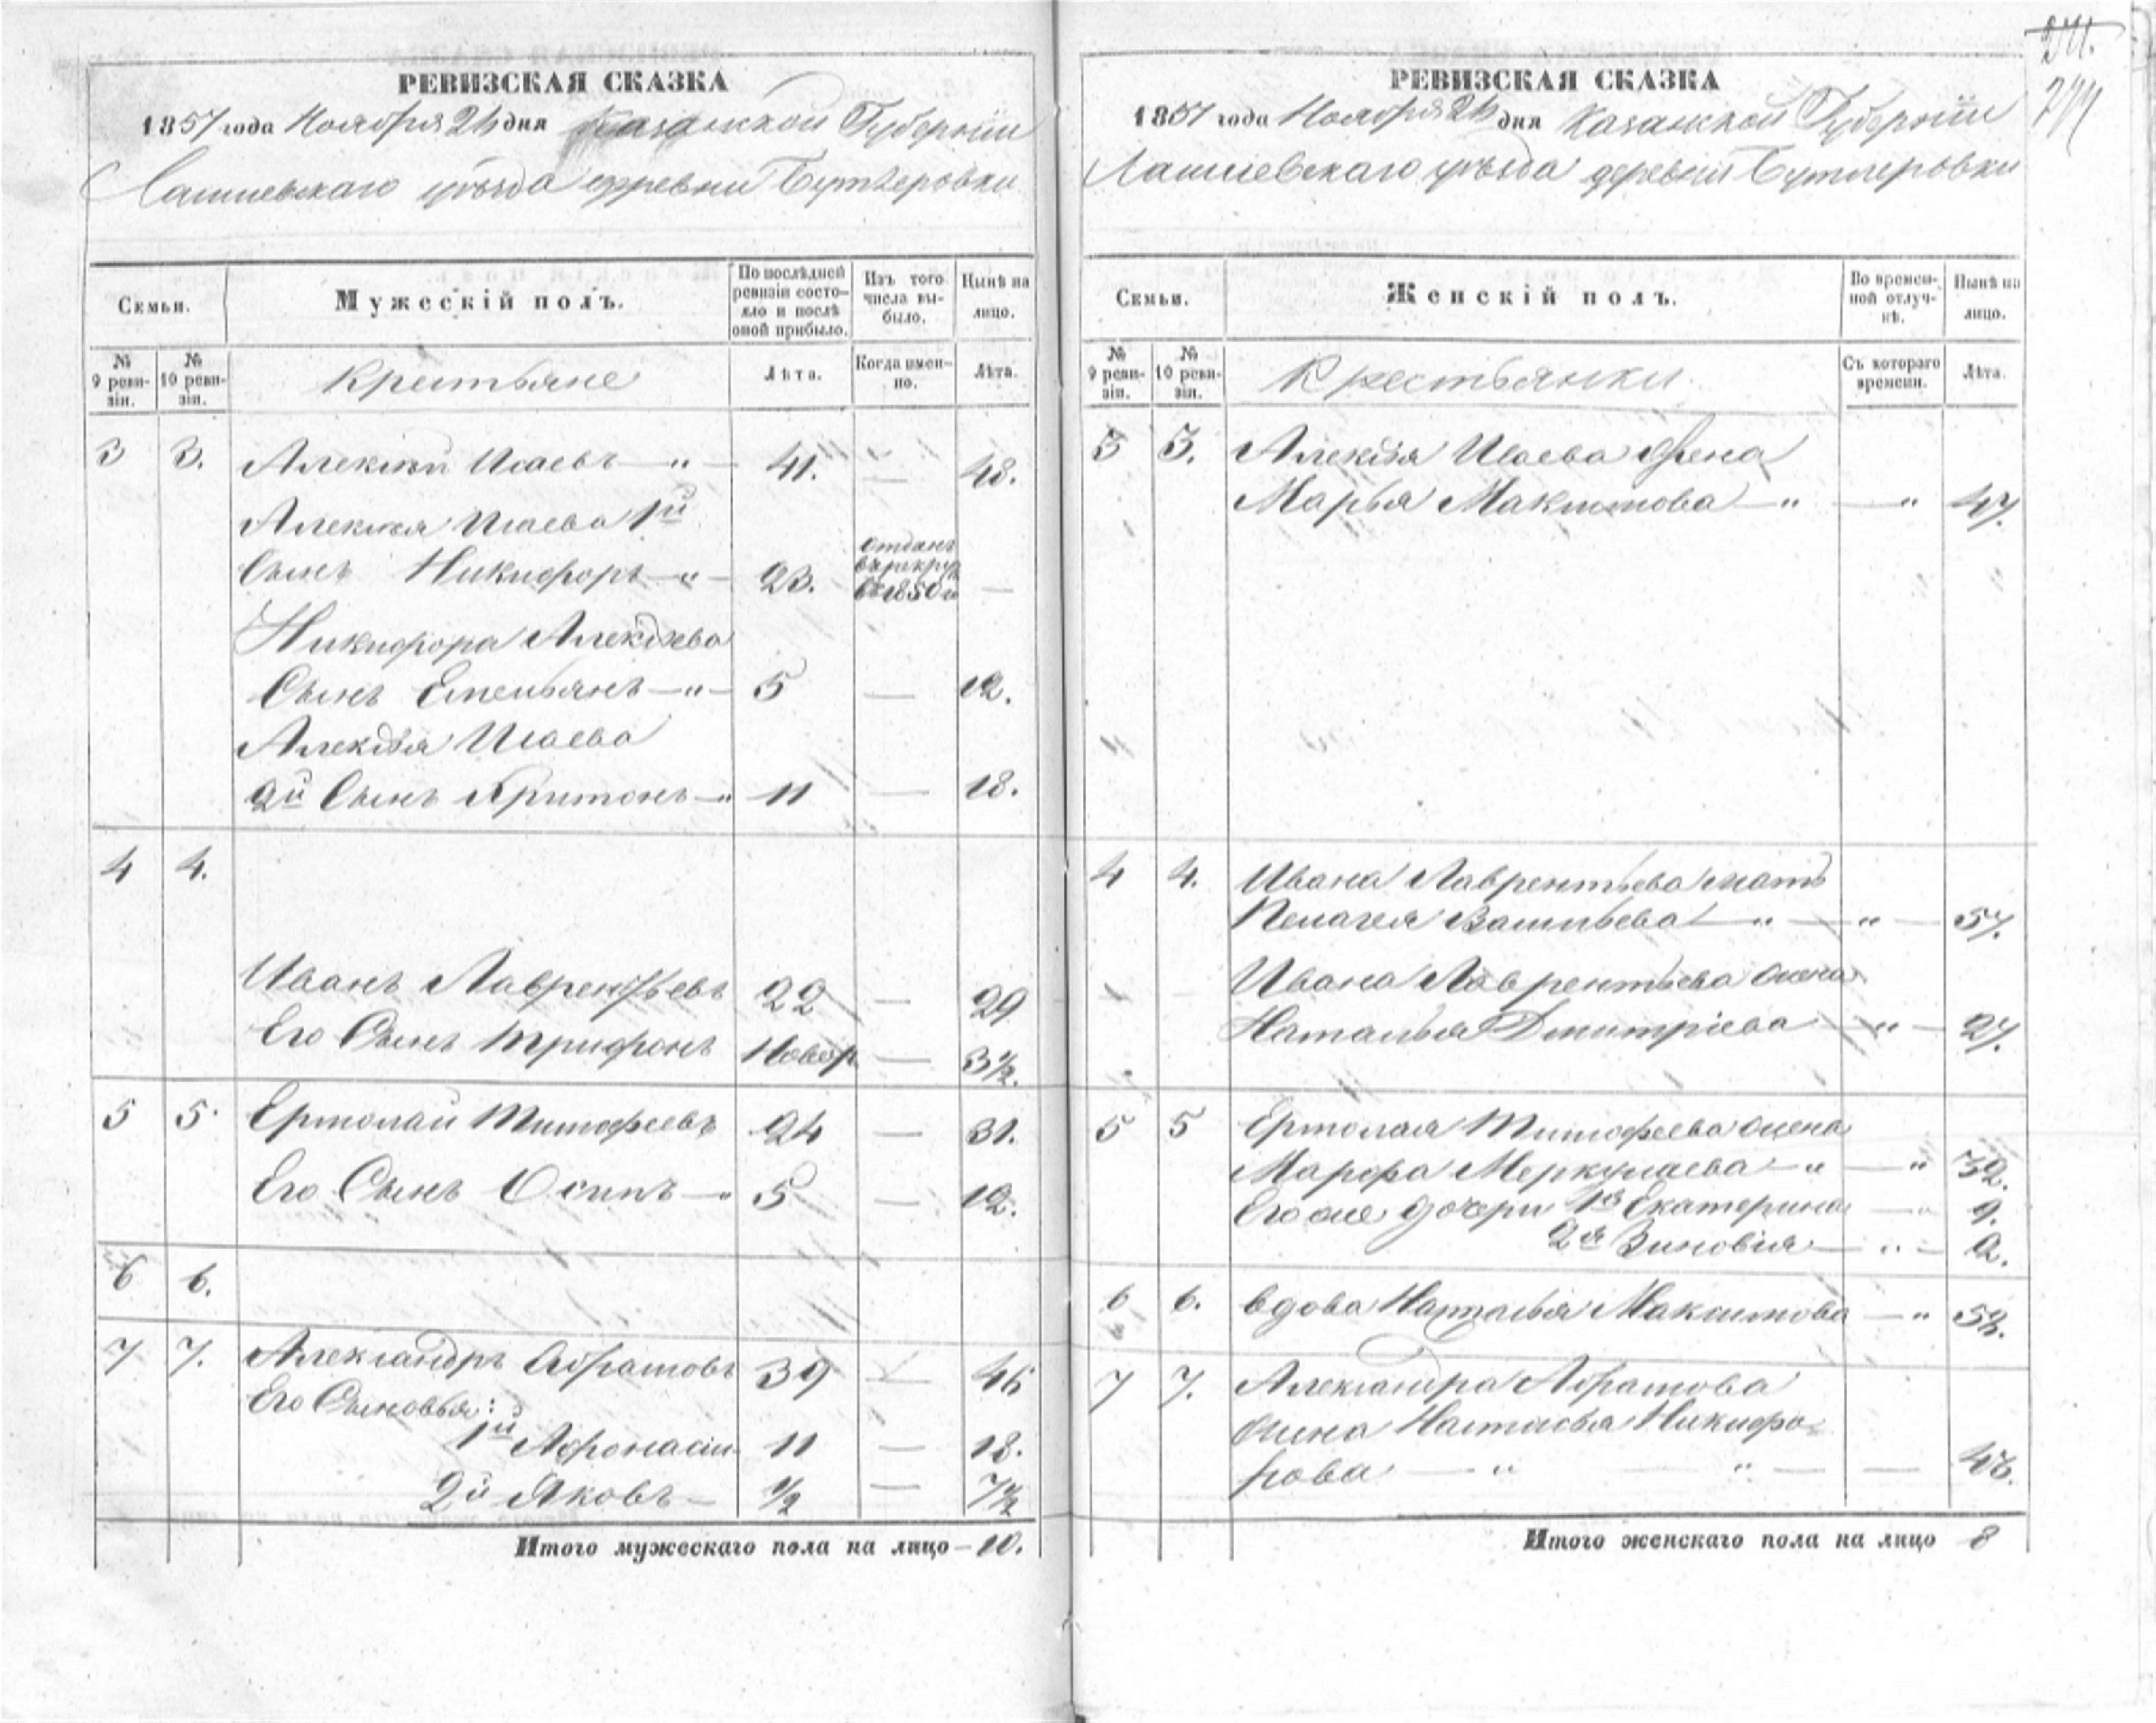 РЕВИЗСКАЯ СКАЗКА
1857 года Ноября 26 дня Казанской Губернии
Лаишевскаго уѣзда деревни Бутлеровки
Семьи.
Мужескій полъ.
По послѣдней ревизіи состояло и послѣ оной прибыло.
Изъ того числа выбыло.
Нынѣ на лицо.
№ 9 ревизіи.
№ 10 ревизіи.
Крестьяне
Лѣта.
Когда именно.
Лѣта.
3 3. Алексѣй Исаевъ — " — 41. — 48.
Алексѣя Исаева 1й
Сынъ Никифоръ — " — 23. отданъ въ рекруты въ 1850 г. —
Никифора Алексѣева
Сынъ Емельянъ — " — 5 — 12.
Алексѣя Исаева
2й Сынъ Харитонъ — " 11 — 18.
4 4.
Иванъ Лаврентьевъ 22 — 29
Его Сынъ Трифонъ Новор. — 3½.
5 5. Ермолай Тимофеевъ 24 — 31.
Его Сынъ Осипъ — " 5 — 12.
6 6.
7 7. Александръ Абрамовъ 39 — 46
Его Сыновья:
1й Афонасій 11 — 18.
2й Яковъ — ½ — 7½
Итого мужескаго пола на лицо — 10.
РЕВИЗСКАЯ СКАЗКА
1857 года Ноября 26 дня Казанской Губернии
Лаишевскаго уѣзда деревни Бутлеровки
Семьи.
Женскій полъ.
Во временной отлучкѣ.
Нынѣ на лицо.
№ 9 ревизіи.
№ 10 ревизіи.
Крестьянки
Съ котораго времени.
Лѣта.
3 3. Алексѣя Исаева жена
Марья Максимова — " — " 47.
4 4. Ивана Лаврентьева мать
Пелагея Васильева — " — " — 57.
Ивана Лаврентьева жена
Наталья Дмитріева — " — 27.
5 5 Ермолая Тимофеева жена
Марфа Меркулаева — " — " 32.
Его же дочери 1я Екатерина — " 9.
2я Зиновія — " — 2.
6 6. вдова Наталья Максимова — " 53.
7 7. Александра Абрамова
жена Настасья Никифо-
рова — " " — — 46.
Итого женскаго пола на лицо 8